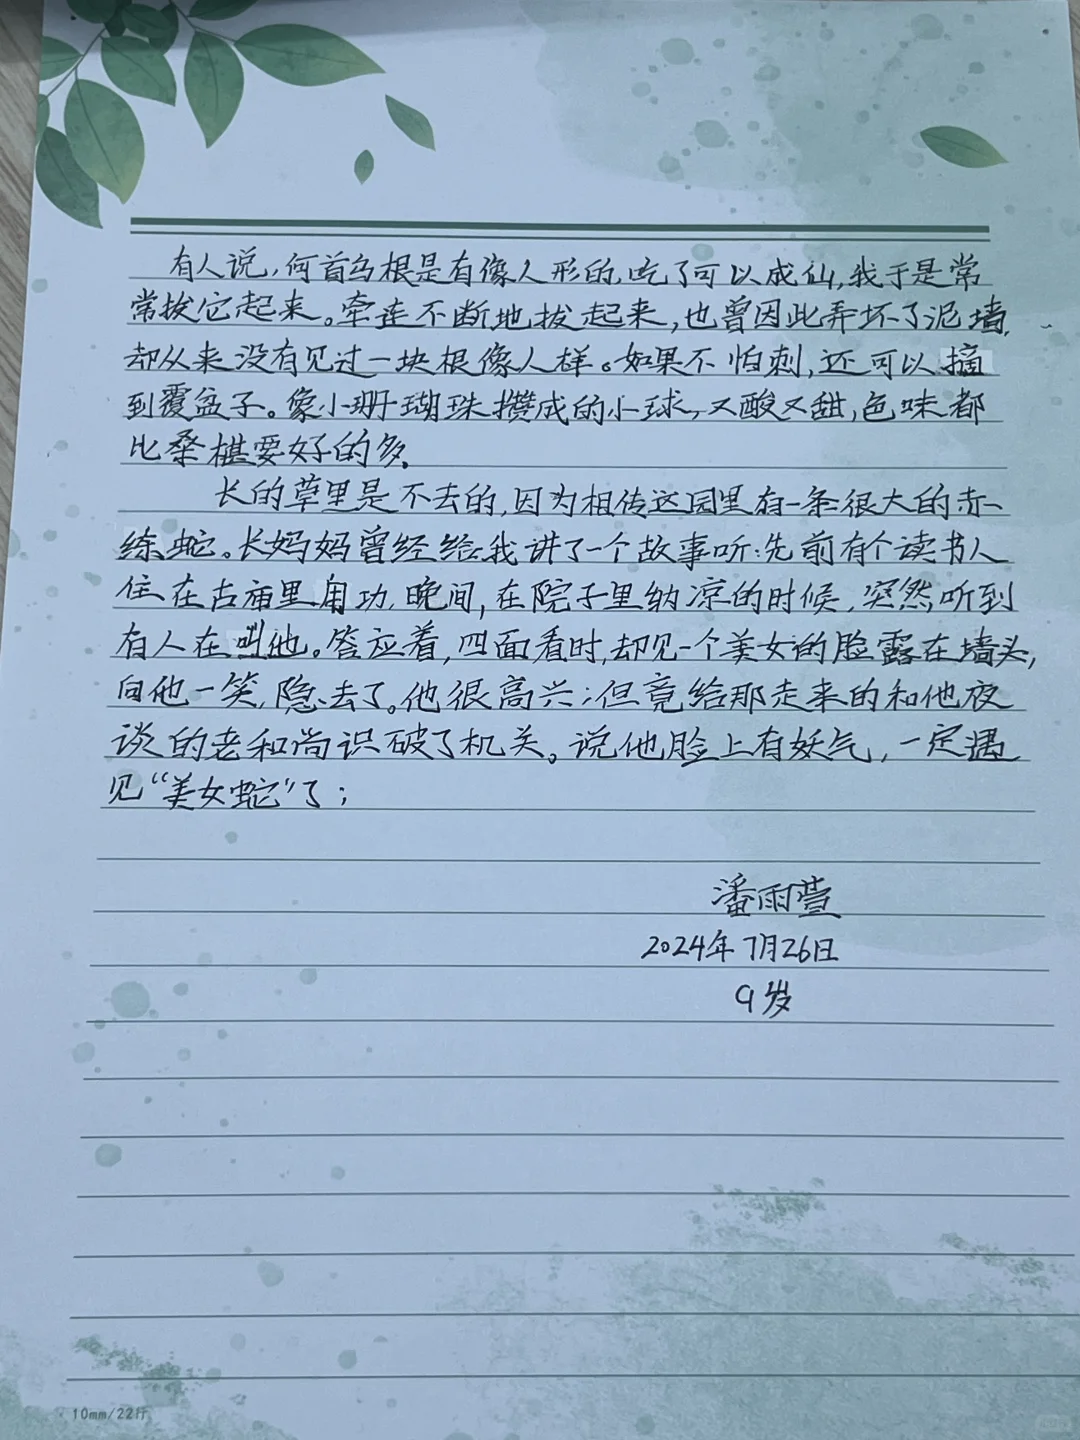 有人说，何首乌根是有像人形的，吃了可以成仙，我于是常
常拔它起来。牵连不断地拔起来，也曾因此弄坏了泥墙，
却从来没有见过一块根像人样。如果不怕刺，还可以摘
到覆盆子。像小珊瑚珠攒成的小球，又酸又甜，色味都
比桑椹要好的多。
长的草里是不去的，因为相传这园里有一条很大的赤
练蛇。长妈妈曾经给我讲了一个故事听：先前有个读书人
住在古庙里用功，晚间，在院子里纳凉的时候，突然听到
有人在叫他。答应着，四面看时，却见一个美女的脸露在墙头，
向他一笑，隐去了。他很高兴；但竟给那走来的和他夜
谈的老和尚识破了机关。说他脸上有妖气，一定遇
见“美女蛇”了；
潘雨萱
2024年7月26日
9岁
10mm/22行